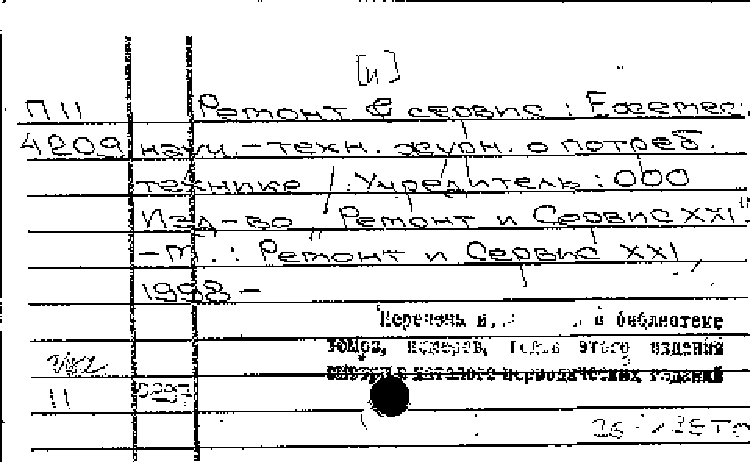 [и]
П 11 Ремонт & сервис : Ежемес.
4209 научн.-техн. журн. о потреб.
технике / Учредитель : ООО
Изд-во "Ремонт и Сервис XXI"
- М. : Ремонт и Сервис XXI,
1998 -
Перечень в библиотеке
томов, номеров, годов этого издания
смотри в каталоге периодических изданий
11